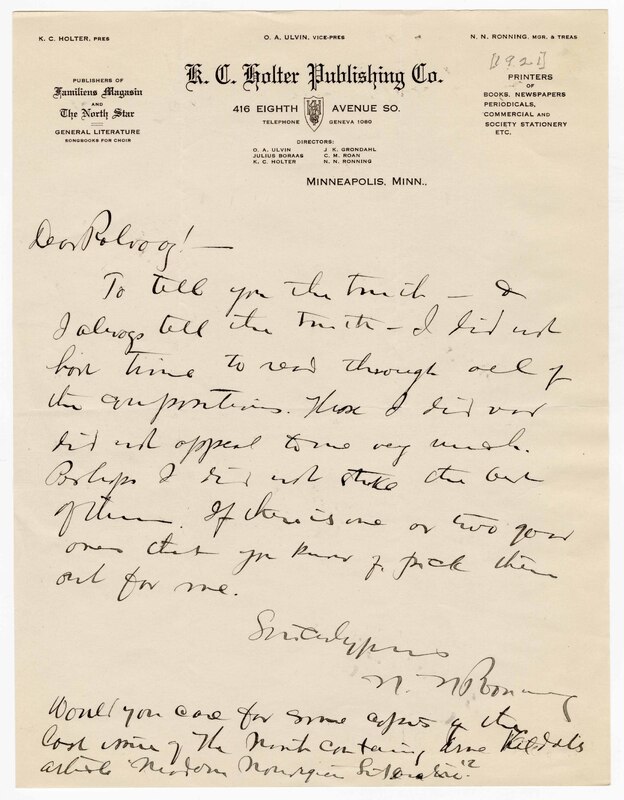 K. C. HOLTER, PRES
O. A. ULVIN, VICE-PRES
N. N. RONNING, MGR. & TREAS
[1921]
PUBLISHERS OF
Familiens Magasin
AND
The North Star
GENERAL LITERATURE
SONGBOOKS FOR CHOIR
K. C. Holter Publishing Co.
416 EIGHTH AVENUE SO.
TELEPHONE GENEVA 1080
DIRECTORS:
O. A. ULVIN J. K. GRONDAHL
JULIUS BORAAS C. M. ROAN
K. C. HOLTER N. N. RONNING
PRINTERS
OF
BOOKS, NEWSPAPERS
PERIODICALS,
COMMERCIAL AND
SOCIETY STATIONERY
ETC.
MINNEAPOLIS, MINN.,
Dear Rolvaag! —
To tell you the truth – &
I always tell the truth – I did not
have time to read through all of
the compositions. Those I did read
did not appeal to me very much.
Perhaps I did not strike the best
of them. If there is one or two good
ones that you know of pick them
out for me.
Sincerely yours
N. N. Ronning
Would you care for some copies of the
last issue of The North containing Kildal's
article "Modern Norwegian Literature"